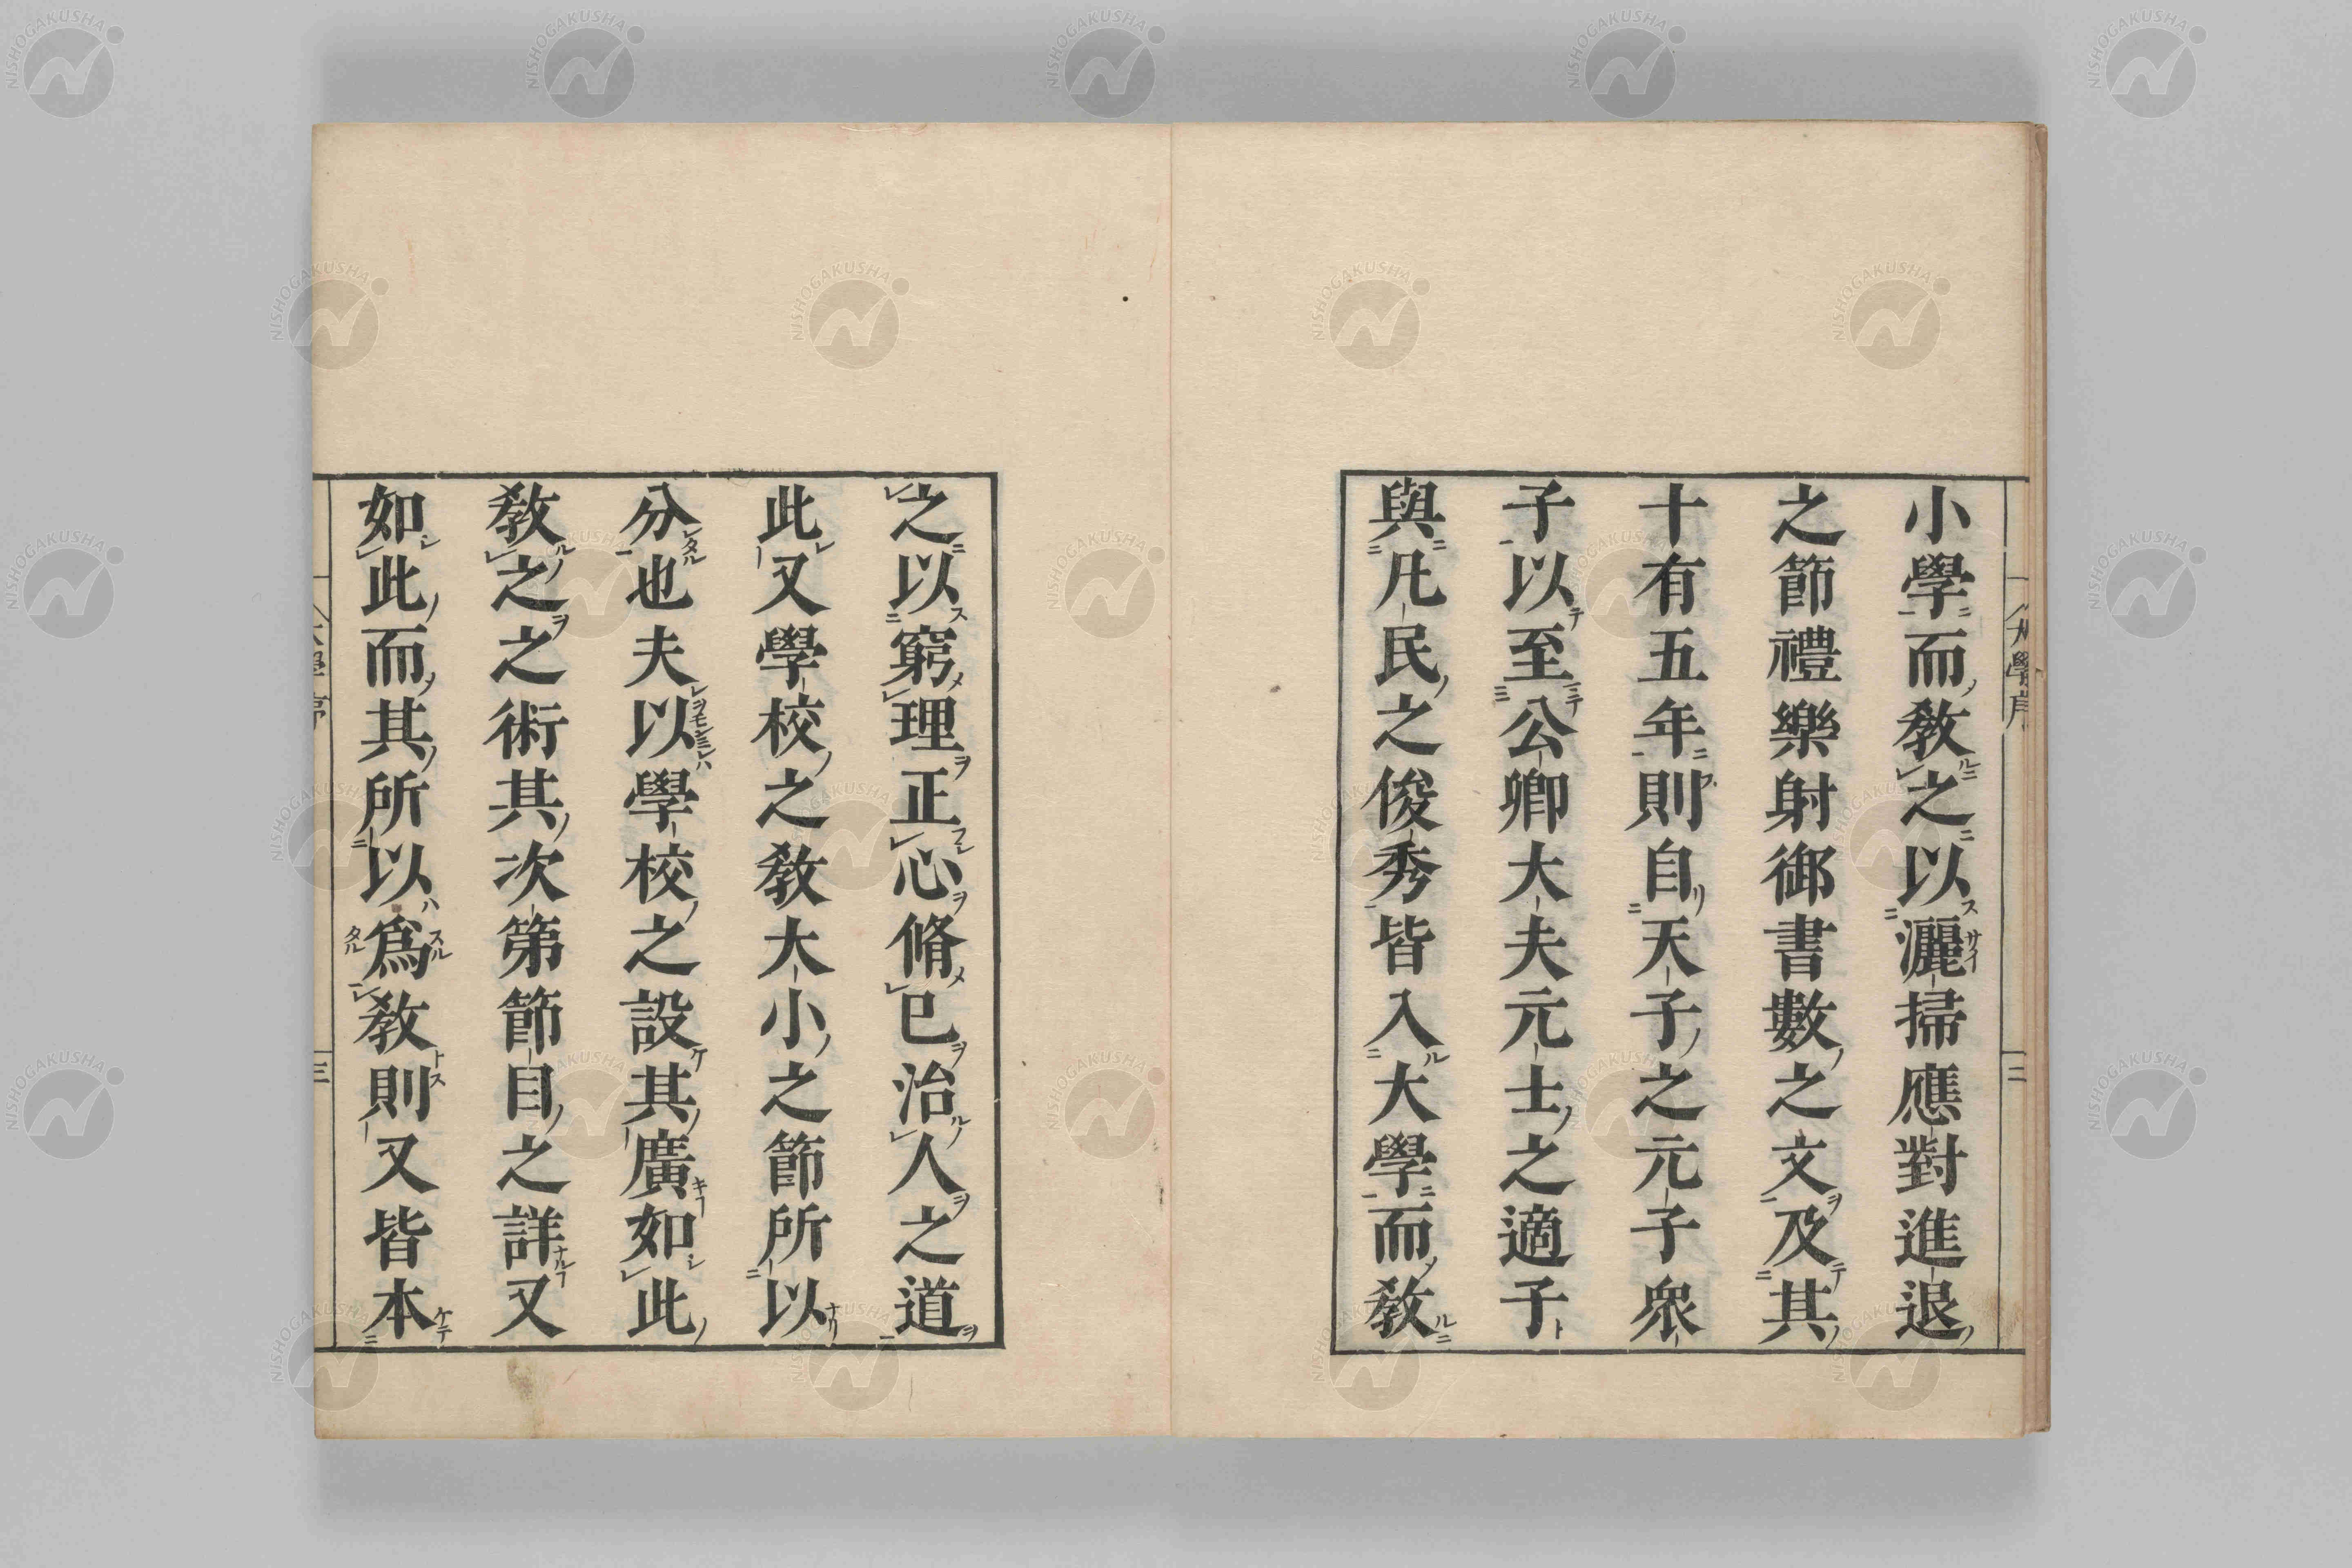 小學而教之以灑掃應對進退
之節禮樂射御書數之文及其
十有五年則自天子之元子衆
子以至公卿大夫元士之適子
與凡民之俊秀皆入大學而教
之以窮理正心脩己治人之道
此又學校之教大小之節所以
分也夫以學校之設其廣如此
教之之術其次第節目之詳又
如此而其所以爲教則又皆本
大學序
二
三
NISHOGAKUSHA